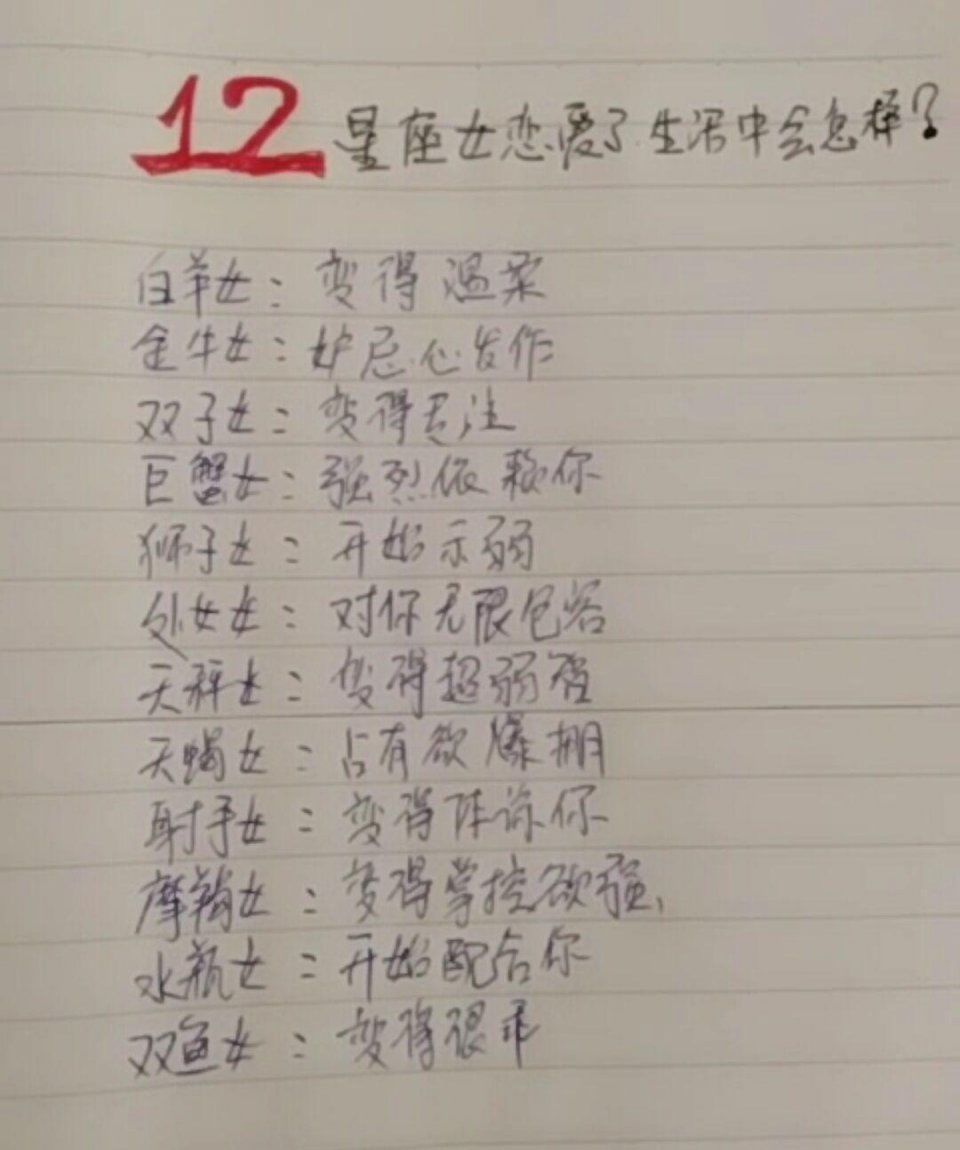 12星座女恋爱了生活中会怎样?
白羊女：变得温柔
金牛女：妒忌心发作
双子女：变得专注
巨蟹女：强烈依赖你
狮子女：开始示弱
处女女：对你无限包容
天秤女：变得超弱智
天蝎女：占有欲爆棚
射手女：变得体谅你
摩羯女：变得掌控欲强
水瓶女：开始配合你
双鱼女：变得很乖